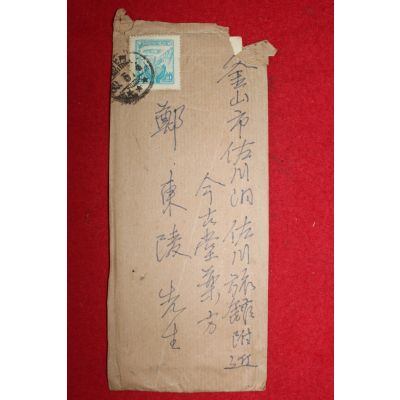 釜山市佐川洞佐川旅館附近
今古堂薬方
鄭東陵先生